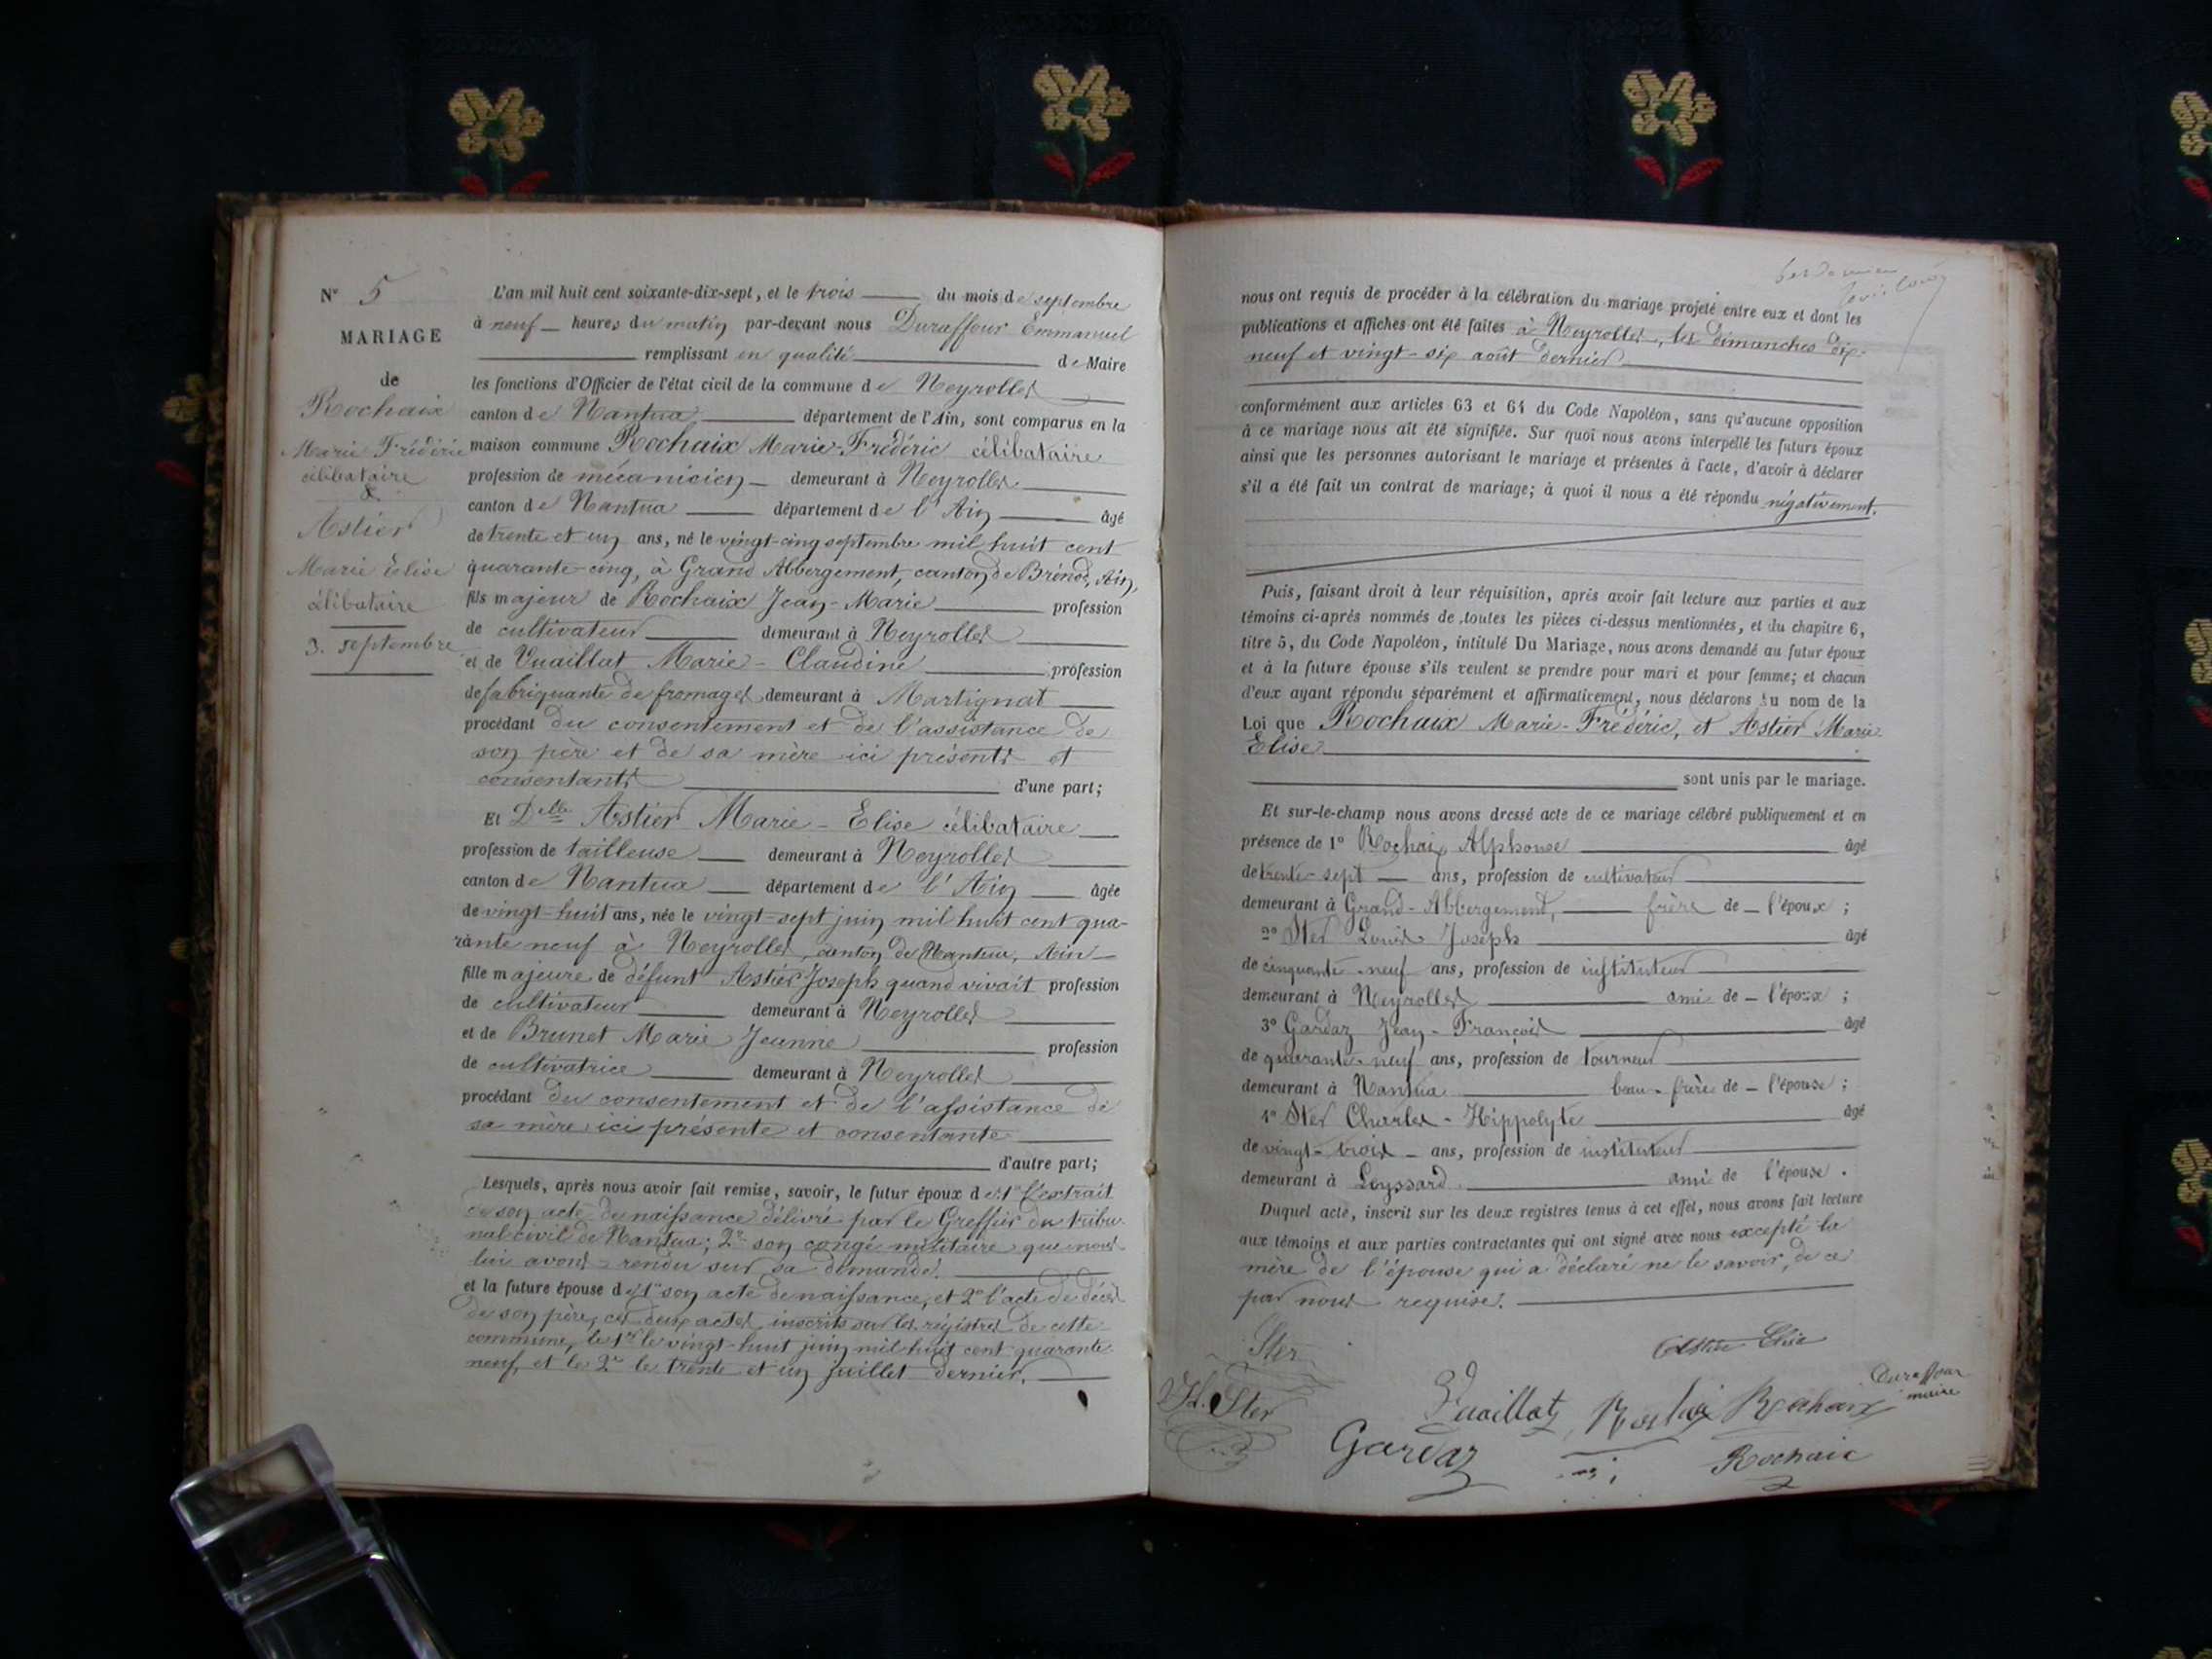 N° 5
MARIAGE
de
Rochaix
Marie Frédéric
célibataire
&
Astier
Marie Elise
célibataire
3. septembre
L'an mil huit cent soixante-dix-sept, et le trois du mois de septembre
à neuf heures du matin par-devant nous Duraffour Emmanuel
remplissant en qualité de Maire
les fonctions d'Officier de l'état civil de la commune de Neyrolles
canton de Nantua département de l'Ain, sont comparus en la
maison commune Rochaix Marie-Frédéric célibataire
profession de mécanicien demeurant à Neyrolles
canton de Nantua département de l'Ain âgé
de trente et un ans, né le vingt-cinq septembre mil huit cent
quarante-cinq, à Grand Abbergement, canton de Brénod, Ain,
fils majeur de Rochaix Jean-Marie profession
de cultivateur demeurant à Neyrolles
et de Vuaillat Marie-Claudine profession
de fabriquante de fromages demeurant à Martignat
procédant du consentement et de l'assistance de
son père et de sa mère ici présents et
consentants d'une part;
Et Delle Astier Marie-Elise célibataire
profession de tailleuse demeurant à Neyrolles
canton de Nantua département de l'Ain âgée
de vingt-huit ans, née le vingt-sept juin mil huit cent qua-
rante neuf à Neyrolles, canton de Nantua, Ain
fille majeure de défunt Astier Joseph quand vivait profession
de cultivateur demeurant à Neyrolles
et de Brunet Marie Jeanne profession
de cultivatrice demeurant à Neyrolles
procédant du consentement et de l'assistance de
sa mère ici présente et consentante
d'autre part;
Lesquels, après nous avoir fait remise, savoir, le futur époux de 1° l'extrait
de son acte de naissance délivré par le Greffier du tribu-
nal civil de Nantua; 2° son congé militaire que nous
lui avons rendu sur sa demande.
et la future épouse de 1° son acte de naissance, et 2° l'acte de décès
de son père, ces deux actes inscrits sur les régistres de cette
commune, le 1er le vingt-huit juin mil huit cent quarante
neuf, et le 2e le trente et un juillet dernier.
nous ont requis de procéder à la célébration du mariage projeté entre eux et dont les
publications et affiches ont été faites à Neyrolles, les dimanches dix-
neuf et vingt-six août dernier
conformément aux articles 63 et 64 du Code Napoléon, sans qu'aucune opposition
à ce mariage nous ait été signifiée. Sur quoi nous avons interpellé les futurs époux
ainsi que les personnes autorisant le mariage et présentes à l'acte, d'avoir à déclarer
s'il a été fait un contrat de mariage; à quoi il nous a été répondu négativement.
Puis, faisant droit à leur réquisition, après avoir fait lecture aux parties et aux
témoins ci-après nommés de toutes les pièces ci-dessus mentionnées, et du chapitre 6,
titre 5, du Code Napoléon, intitulé Du Mariage, nous avons demandé au futur époux
et à la future épouse s'ils veulent se prendre pour mari et pour femme; et chacun
d'eux ayant répondu séparément et affirmativement, nous déclarons au nom de la
Loi que Rochaix Marie-Frédéric, et Astier Marie
Elise
sont unis par le mariage.
Et sur-le-champ nous avons dressé acte de ce mariage célébré publiquement et en
présence de 1° Rochaix Alphonse âgé
de trente-sept ans, profession de cultivateur
demeurant à Grand-Abbergement, frère de l'époux;
2° Ster Louis Joseph âgé
de cinquante-neuf ans, profession de instituteur
demeurant à Neyrolles ami de l'époux;
3° Gardaz Jean-François âgé
de quarante-neuf ans, profession de tourneur
demeurant à Nantua beau-frère de l'épouse;
4° Ster Charles-Hippolyte âgé
de vingt-trois ans, profession de instituteur
demeurant à Leyssard ami de l'épouse.
Duquel acte, inscrit sur les deux registres tenus à cet effet, nous avons fait lecture
aux témoins et aux parties contractantes qui ont signé avec nous excepté la
mère de l'épouse qui a déclaré ne le savoir, de ce
par nous requise.
Ster
Astier Elise
H. Ster
Vuaillat, Rochaix Rochaix
Duraffour
maire
Gardaz
Rochaix